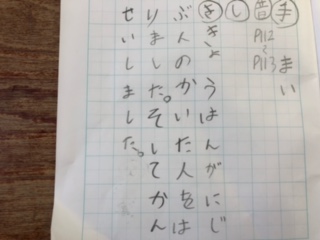 手まい
音 P112〜P113
し
き
きょうはんがにじ
ぶんのかいた人をは
りました。そしてかん
せいしました。